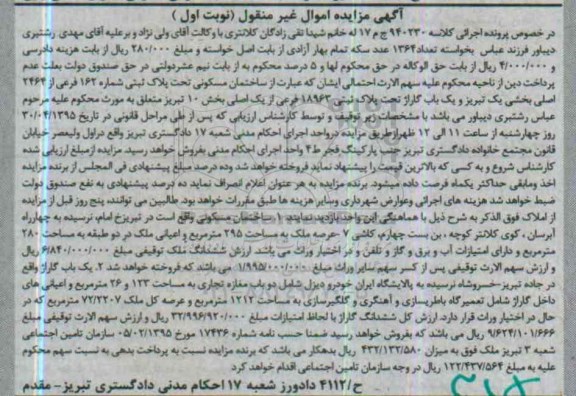 آگهی مزایده اموال غیر منقول (نوبت اول )
در خصوص پرونده اجرائی کلاسه ۹۴۰۲۳۰ ج م ۱۷ له خانم شیدا تقی زادگان کلانتری با وکالت آقای ولی نژاد و برعلیه آقای مهدی رشتبری
دیباور فرزند عباس بخواسته تعداد ۱۳۶۴ عدد سکه تمام بهار آزادی از بابت اصل خواسته و مبلغ ۲۸۰/۰۰۰ ریال از بابت هزینه دادرسی
و ۴/۰۰۰/۰۰۰ ریال از بابت حق الوکاله در حق محکوم لها و ۵ درصد محکوم به از بابت نیم عشر دولتی در حق صندوق دولت بعلت عدم
پرداخت دین از ناحیه محکوم علیه سهم الارث احتمالی ایشان که عبارت از ساختمان مسکونی تحت پلاک ثبتی شماره ۱۶۲ فرعی از ۲۴۶۴
اصلی بخشی یک تبریز و یک باب گاراژ تحت پلاک ثبتی ۱۸۹۶۲ فرعی از یک اصلی بخش ۱۰ تبریز متعلق به مورث محکوم علیه مرحوم
عباس رشتبری دیباور می باشد با مشخصات زیر توقیف و توسط کارشناس ارزیابی که پس از طی مراحل قانونی در تاریخ ۳۰/۰۴/۱۳۹۵
روز چهارشنبه از ساعت ۱۱ الی ۱۲ ظهر از طریق مزایده در واحد اجرای احکام مدنی شعبه ۱۷ دادگستری تبریز واقع در اول ولیعصر خیابان
قانون مجتمع خانواده دادگستری تبریز جنب پارکینگ فجر ط ۴ واحد اجرای احکام مدنی بفروش خواهد رسید. مزایده از مبلغ ارزیابی شده
کارشناس شروع و به کسی که بالاترین قیمت را پیشنهاد نماید فروخته خواهد شد و ده درصد مبلغ پیشنهادی فی المجلس از برنده مزایده
اخذ و مابقی حداکثر یکماه فرصت داده میشود. برنده مزایده به هر عنوان اعلام انصراف نماید ده درصد پیشنهادی به نفع صندوق دولت
ضبط خواهد شد هزینه های اجرائی و عوارض شهرداری و سایر هزینه ها طبق مقررات خواهد بود. طالبین می توانند پنج روز قبل از مزایده
از املاک فوق الذکر به شرح ذیل با هماهنگی این واحد بازدید نمایند ۱. ساختمان مسکونی واقع است در تبریز خ امام، نرسیده به چهارراه
آبرسان ، کوی کلانتر کوچه ، بن بست چهارم، کاشی ۷ -عرصه ملک به مساحت ۲۹۵ مترمربع و اعیانی ملک در دو طبقه به مساحت ۲۸۰
مترمربع و دارای امتیازات آب و برق و گاز و تلفن و در اختیار وراث می باشد. ارزش ششدانگ ملک توقیفی مبلغ ۶/۸۴۰/۰۰۰/۰۰۰ ریال
و ارزش سهم الارث توقیفی پس از کسر سهم سایر وراث مبلغ ۱/۹۹۵/۰۰۰/۰۰۰ می باشد که فروخته خواهد شد ۲. یک باب گاراژ واقع
در جاده تبریز-خسروشاه نرسیده به پالایشگاه ایران خودرو دیزل شامل دو باب مغازه تجاری به مساحت ۱۲۳ و ۲۶ مترمربع و اعیانی های
داخل گاراژ شامل تعمیرگاه باطریسازی و آهنگری و گلگیرسازی به مساحت ۱۲۱۲ مترمربع و عرصه کل ملک ۷۲/۲۲۰۷ مترمربع که در
حال در اختیار وراث قرار دارد. ارزش کل ششدانگ گاراژ با لحاظ امتیازات مبلغ ۳۲/۹۹۶/۹۲۰/۰۰۰ ریال و ارزش سهم الارث توقیفی مبلغ
۹/۶۲۴/۱۰۱/۶۶۶ ریال می باشد که بفروش خواهد رسید ضمنا حسب نامه شماره ۱۷۴۳۶ مورخ ۰۵/۰۲/۱۳۹۵ سازمان تامین اجتماعی
شعبه ۳ تبریز ملک فوق به میزان ۴۳۲/۱۳۲/۵۸۰ ریال بدهکار می باشد که برنده مزایده نسبت به پرداخت بدهی به نسبت سهم محکوم
علیه به مبلغ ۱۲۲/۴۳۷/۵۶۴ ریال در وجه سازمان تامین اجتماعی اقدام خواهد کرد
ح/۴۱۱۲ دادورز شعبه ۱۷ احکام مدنی دادگستری تبریز- مقدم